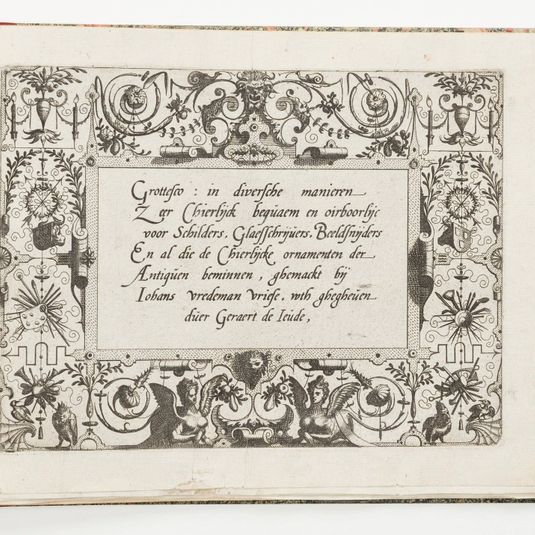 Grottesco : in diversche manieren
Zeer Chierlijck bequaem en oirboorlijc
voor Schilders, Glaesschrijvers, Beeldsnijders
En al die de Chierlijcke ornamenten der
Antiquen beminnen, ghemackt bij
Iohans vredeman vriese, wth ghegheven
duer Geraert de Ieude,